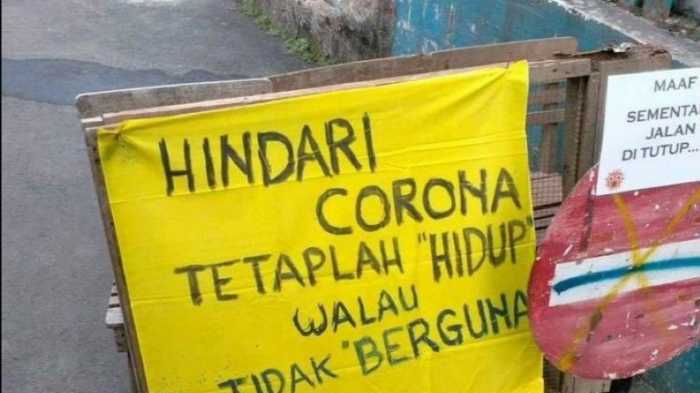 HINDARI
CORONA
TETAPLAH "HIDUP"
WALAU
TIDAK "BERGUNA
MAAF
SEMENTAR
JALAN
DI TUTUP...